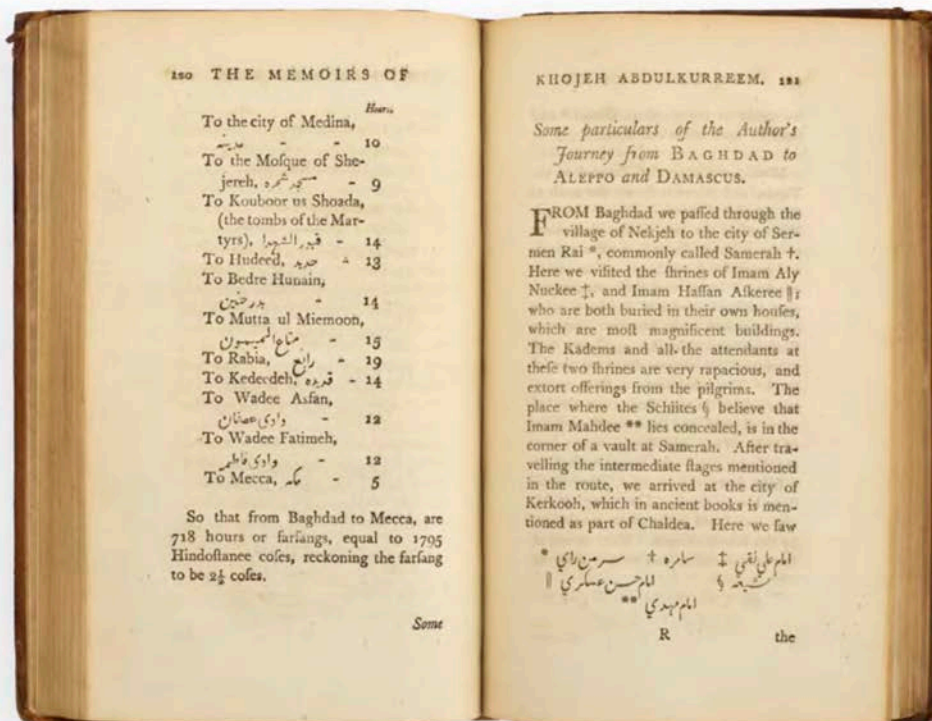 120 THE MEMOIRS OF
Hours.
To the city of Medina,
مدينه - - 10
To the Moſque of She-
jereh, مسجد شجره - 9
To Kouboor us Shoada,
(the tombs of the Mar-
tyrs), قبور الشهدا - 14
To Hudeed, حديد - 13
To Bedre Hunain,
بدر حنين - 14
To Mutta ul Miemoon,
متاع الميمون - 15
To Rabia, رابع - 19
To Kedeedeh, قديده - 14
To Wadee Asfan,
وادي عصفان - 12
To Wadee Fatimeh,
وادي فاطمه - 12
To Mecca, مكه - 5
So that from Baghdad to Mecca, are
718 hours or farſangs, equal to 1795
Hindoſtanee coſes, reckoning the farſang
to be 2½ coſes.
Some
KHOJEH ABDULKURREEM. 121
Some particulars of the Author's
Journey from BAGHDAD to
ALEPPO and DAMASCUS.
FROM Baghdad we paſſed through the
village of Nekjeh to the city of Ser-
men Rai *, commonly called Samerah †.
Here we viſited the ſhrines of Imam Aly
Nuckee ‡, and Imam Haſſan Aſkeree ‖;
who are both buried in their own houſes,
which are moſt magnificent buildings.
The Kadems and all the attendants at
theſe two ſhrines are very rapacious, and
extort offerings from the pilgrims. The
place where the Schiites § believe that
Imam Mahdee ** lies concealed, is in the
corner of a vault at Samerah. After tra-
velling the intermediate ſtages mentioned
in the route, we arrived at the city of
Kerkooh, which in ancient books is men-
tioned as part of Chaldea. Here we ſaw
* سرمن راي † سامره ‡ امام علي نقي
‖ امام حسن عسكري § شيعه
** امام مهدي
R the